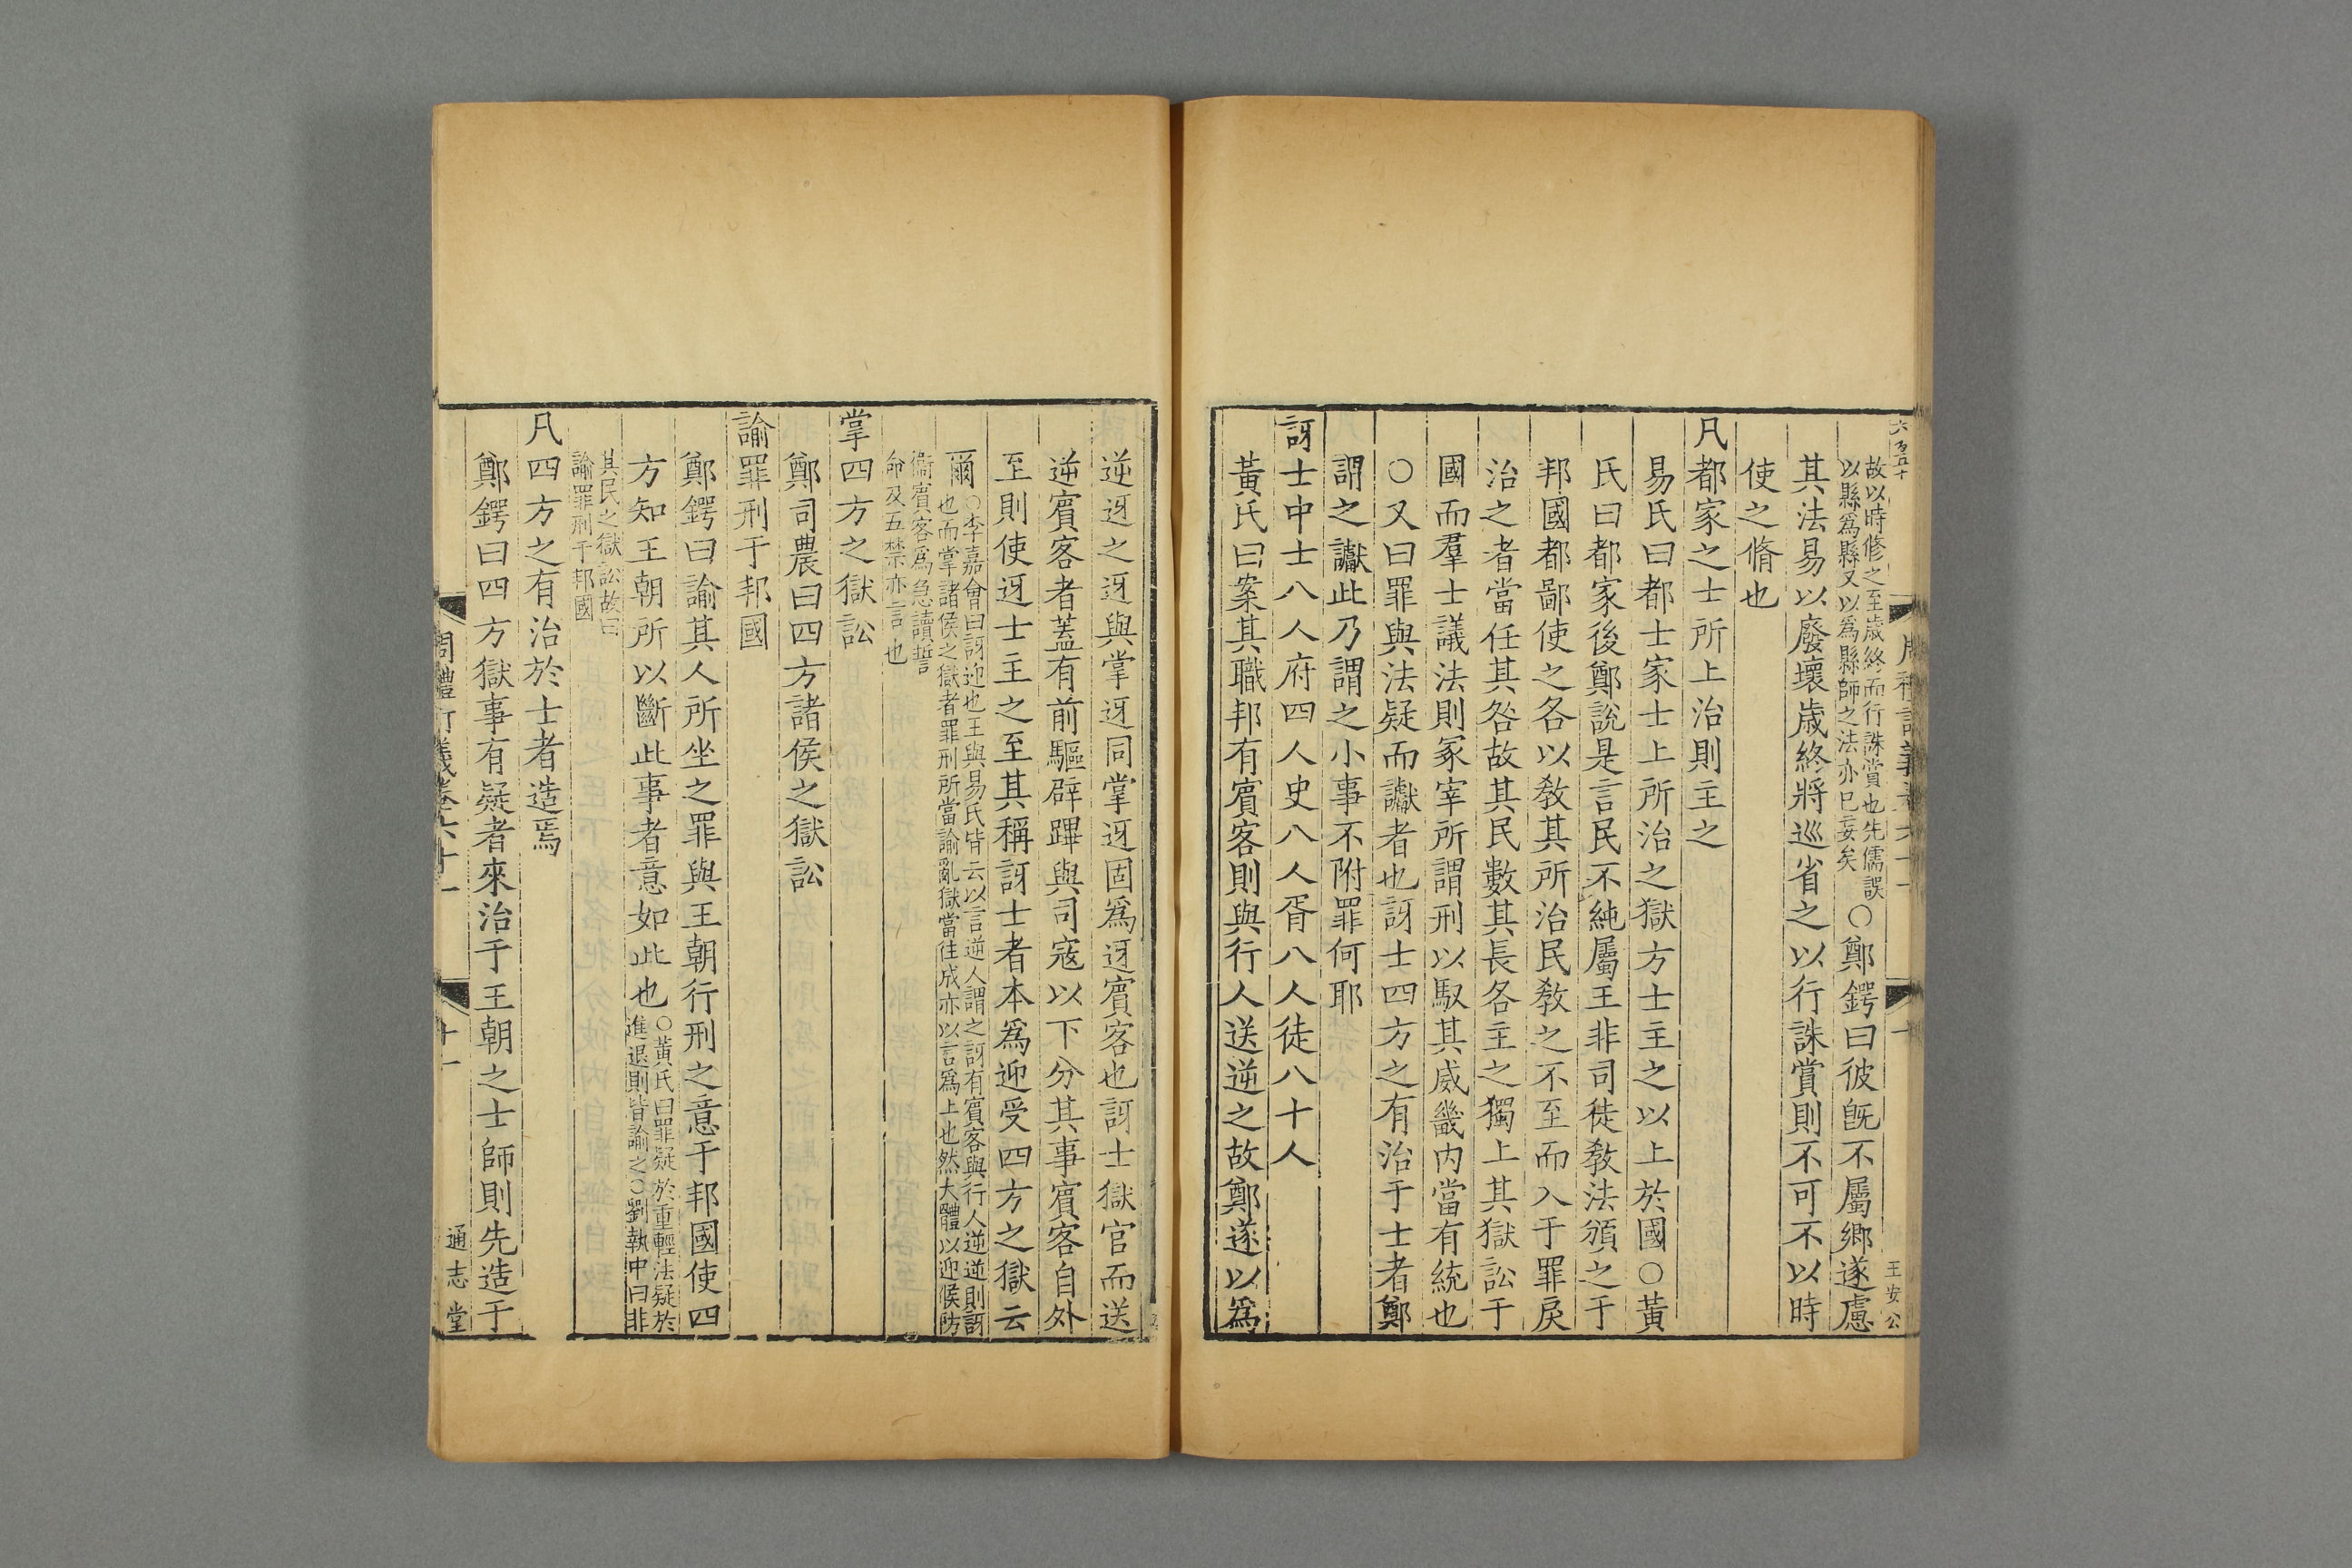 故以時修之至歲終而行誅賞也先儒誤
以縣爲縣又以爲縣師之法亦已妄矣
○鄭鍔曰彼旣不屬鄉遂慮
其法易以廢壞歲終將巡省之以行誅賞則不可不以時
使之脩也
凡都家之士所上治則主之
易氏曰都士家士上所治之獄方士主之以上於國○黃
氏曰都家後鄭說是言民不純屬王非司徒敎法頒之于
邦國都鄙使之各以敎其所治民敎之不至而入于罪戾
治之者當任其咎故其民數其長各主之獨上其獄訟于
國而羣士議法則冢宰所謂刑以馭其威畿内當有統也
○又曰罪與法疑而讞者也訝士四方之有治于士者鄭
謂之讞此乃謂之小事不附罪何耶
訝士中士八人府四人史八人胥八人徒八十人
黃氏曰案其職邦有賓客則與行人送逆之故鄭遂以爲
王安公
逆迓之迓與掌迓同掌迓固爲迓賓客也訝士獄官而送
逆賓客者蓋有前驅辟蹕與司寇以下分其事賓客自外
至則使迓士主之至其稱訝士者本爲迎受四方之獄云
爾
○李嘉會曰訝迎也王與易氏皆云以言逆人謂之訝有賓客與行人逆逆則訝
也而掌諸侯之獄者罪刑所當諭亂獄當往成亦以言爲上也然大體以迎候防
衞賓客爲急讀誓
命及五禁亦言也
掌四方之獄訟
鄭司農曰四方諸侯之獄訟
諭罪刑于邦國
鄭鍔曰諭其人所坐之罪與王朝行刑之意于邦國使四
方知王朝所以斷此事者意如此也
○黃氏曰罪疑於重輕法疑於
進退則皆諭之○劉執中曰非
其民之獄訟故曰
諭罪刑于邦國
凡四方之有治於士者造焉
鄭鍔曰四方獄事有疑者來治于王朝之士師則先造于
周禮訂義卷六十一
十一
通志堂